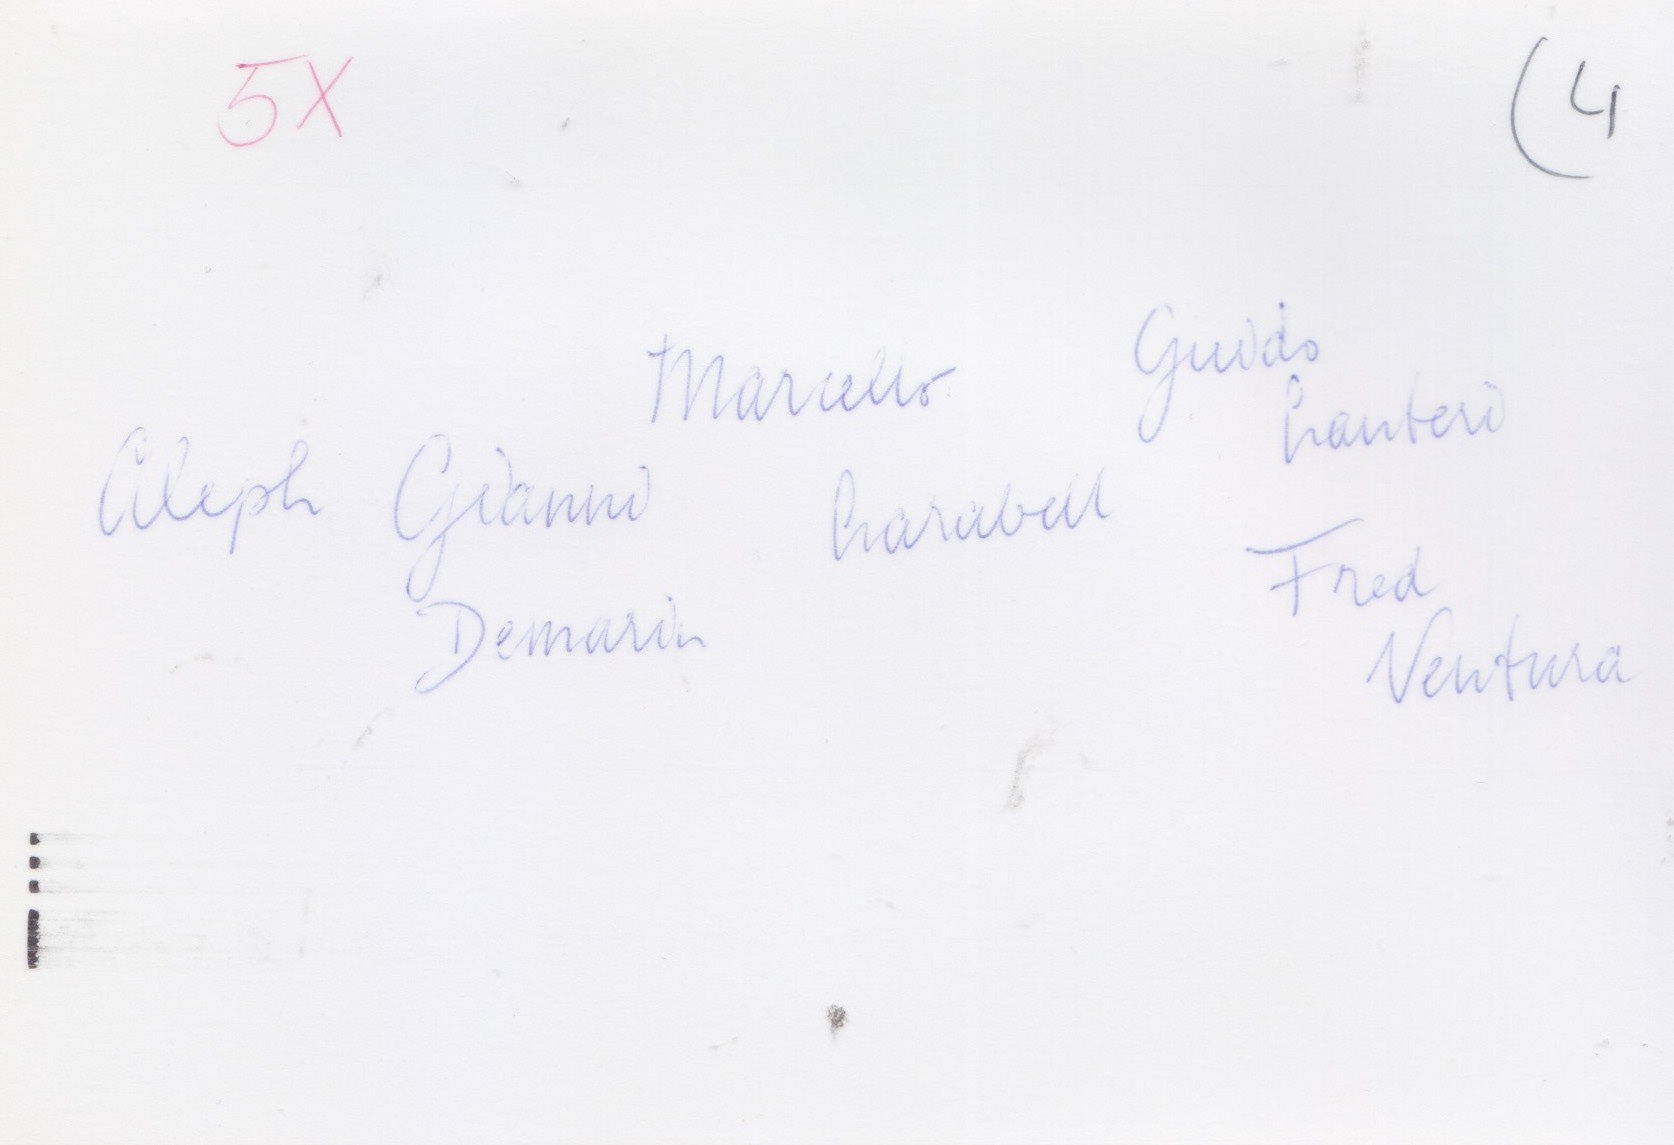 5X
(4
Marcello
Guido
Lanteri
Aleph Gianni
Larabell
Demarin
Fred
Ventura